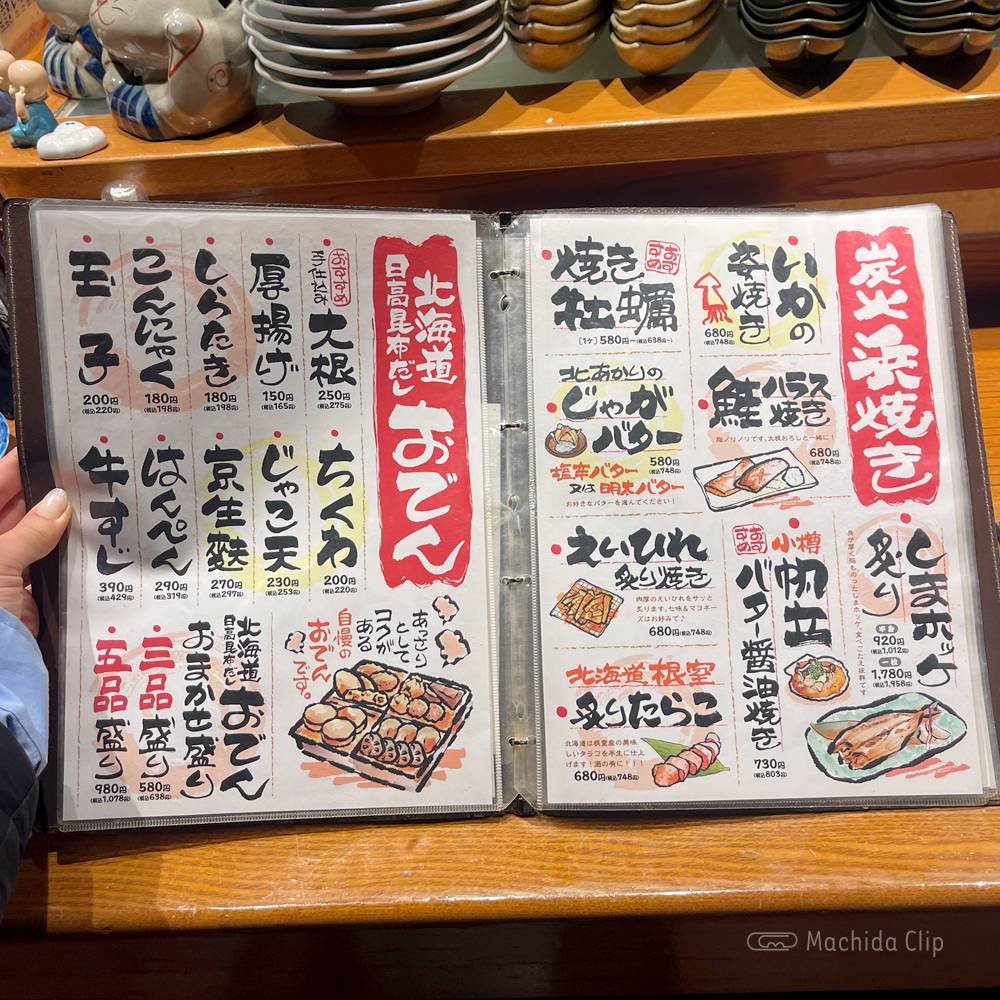 北海道
日高昆布だし
おでん
おすすめ
手仕込み
大根
250円
(税込275円)
厚揚げ
150円
(税込165円)
しらたき
180円
(税込198円)
こんにゃく
180円
(税込198円)
玉子
200円
(税込220円)
ちくわ
200円
(税込220円)
じゃこ天
230円
(税込253円)
京生麩
270円
(税込297円)
はんぺん
290円
(税込319円)
牛すじ
390円
(税込429円)
あっさり
として
コクが
ある
自慢の
おでん
です。
北海道
日高昆布だし
おでん
おまかせ盛り
三品盛り
580円
(税込638円)
五品盛り
980円
(税込1,078円)
炭火浜焼き
いかの
姿焼き
680円
(税込748円)
焼き
牡蠣
おすすめ
[1ケ]580円～(税込638円～)
鮭ハラス
焼き
脂ノリノリです。大根おろしと一緒に!
680円
(税込748円)
北あかりの
じゃが
バター
580円
(税込748円)
塩辛バター
又は 明太バター
お好きなバターを選んでください!
しまホッケ
炙り
身が厚く脂ものったしまホッケ。食べごたえ抜群です
半身
920円
(税込1,012円)
一枚
1,780円
(税込1,958円)
おすすめ
小樽
帆立
バター醤油焼き
730円
(税込803円)
えいひれ
炙り焼き
肉厚のえいひれをサッと
炙ります。七味&マヨネー
ズはお好みで♪
680円(税込748円)
北海道根室
炙りたらこ
北海道は根室産の美味
しいタラコを半生に仕上
げます!酒の肴に!!!
680円(税込748円)
Machida Clip